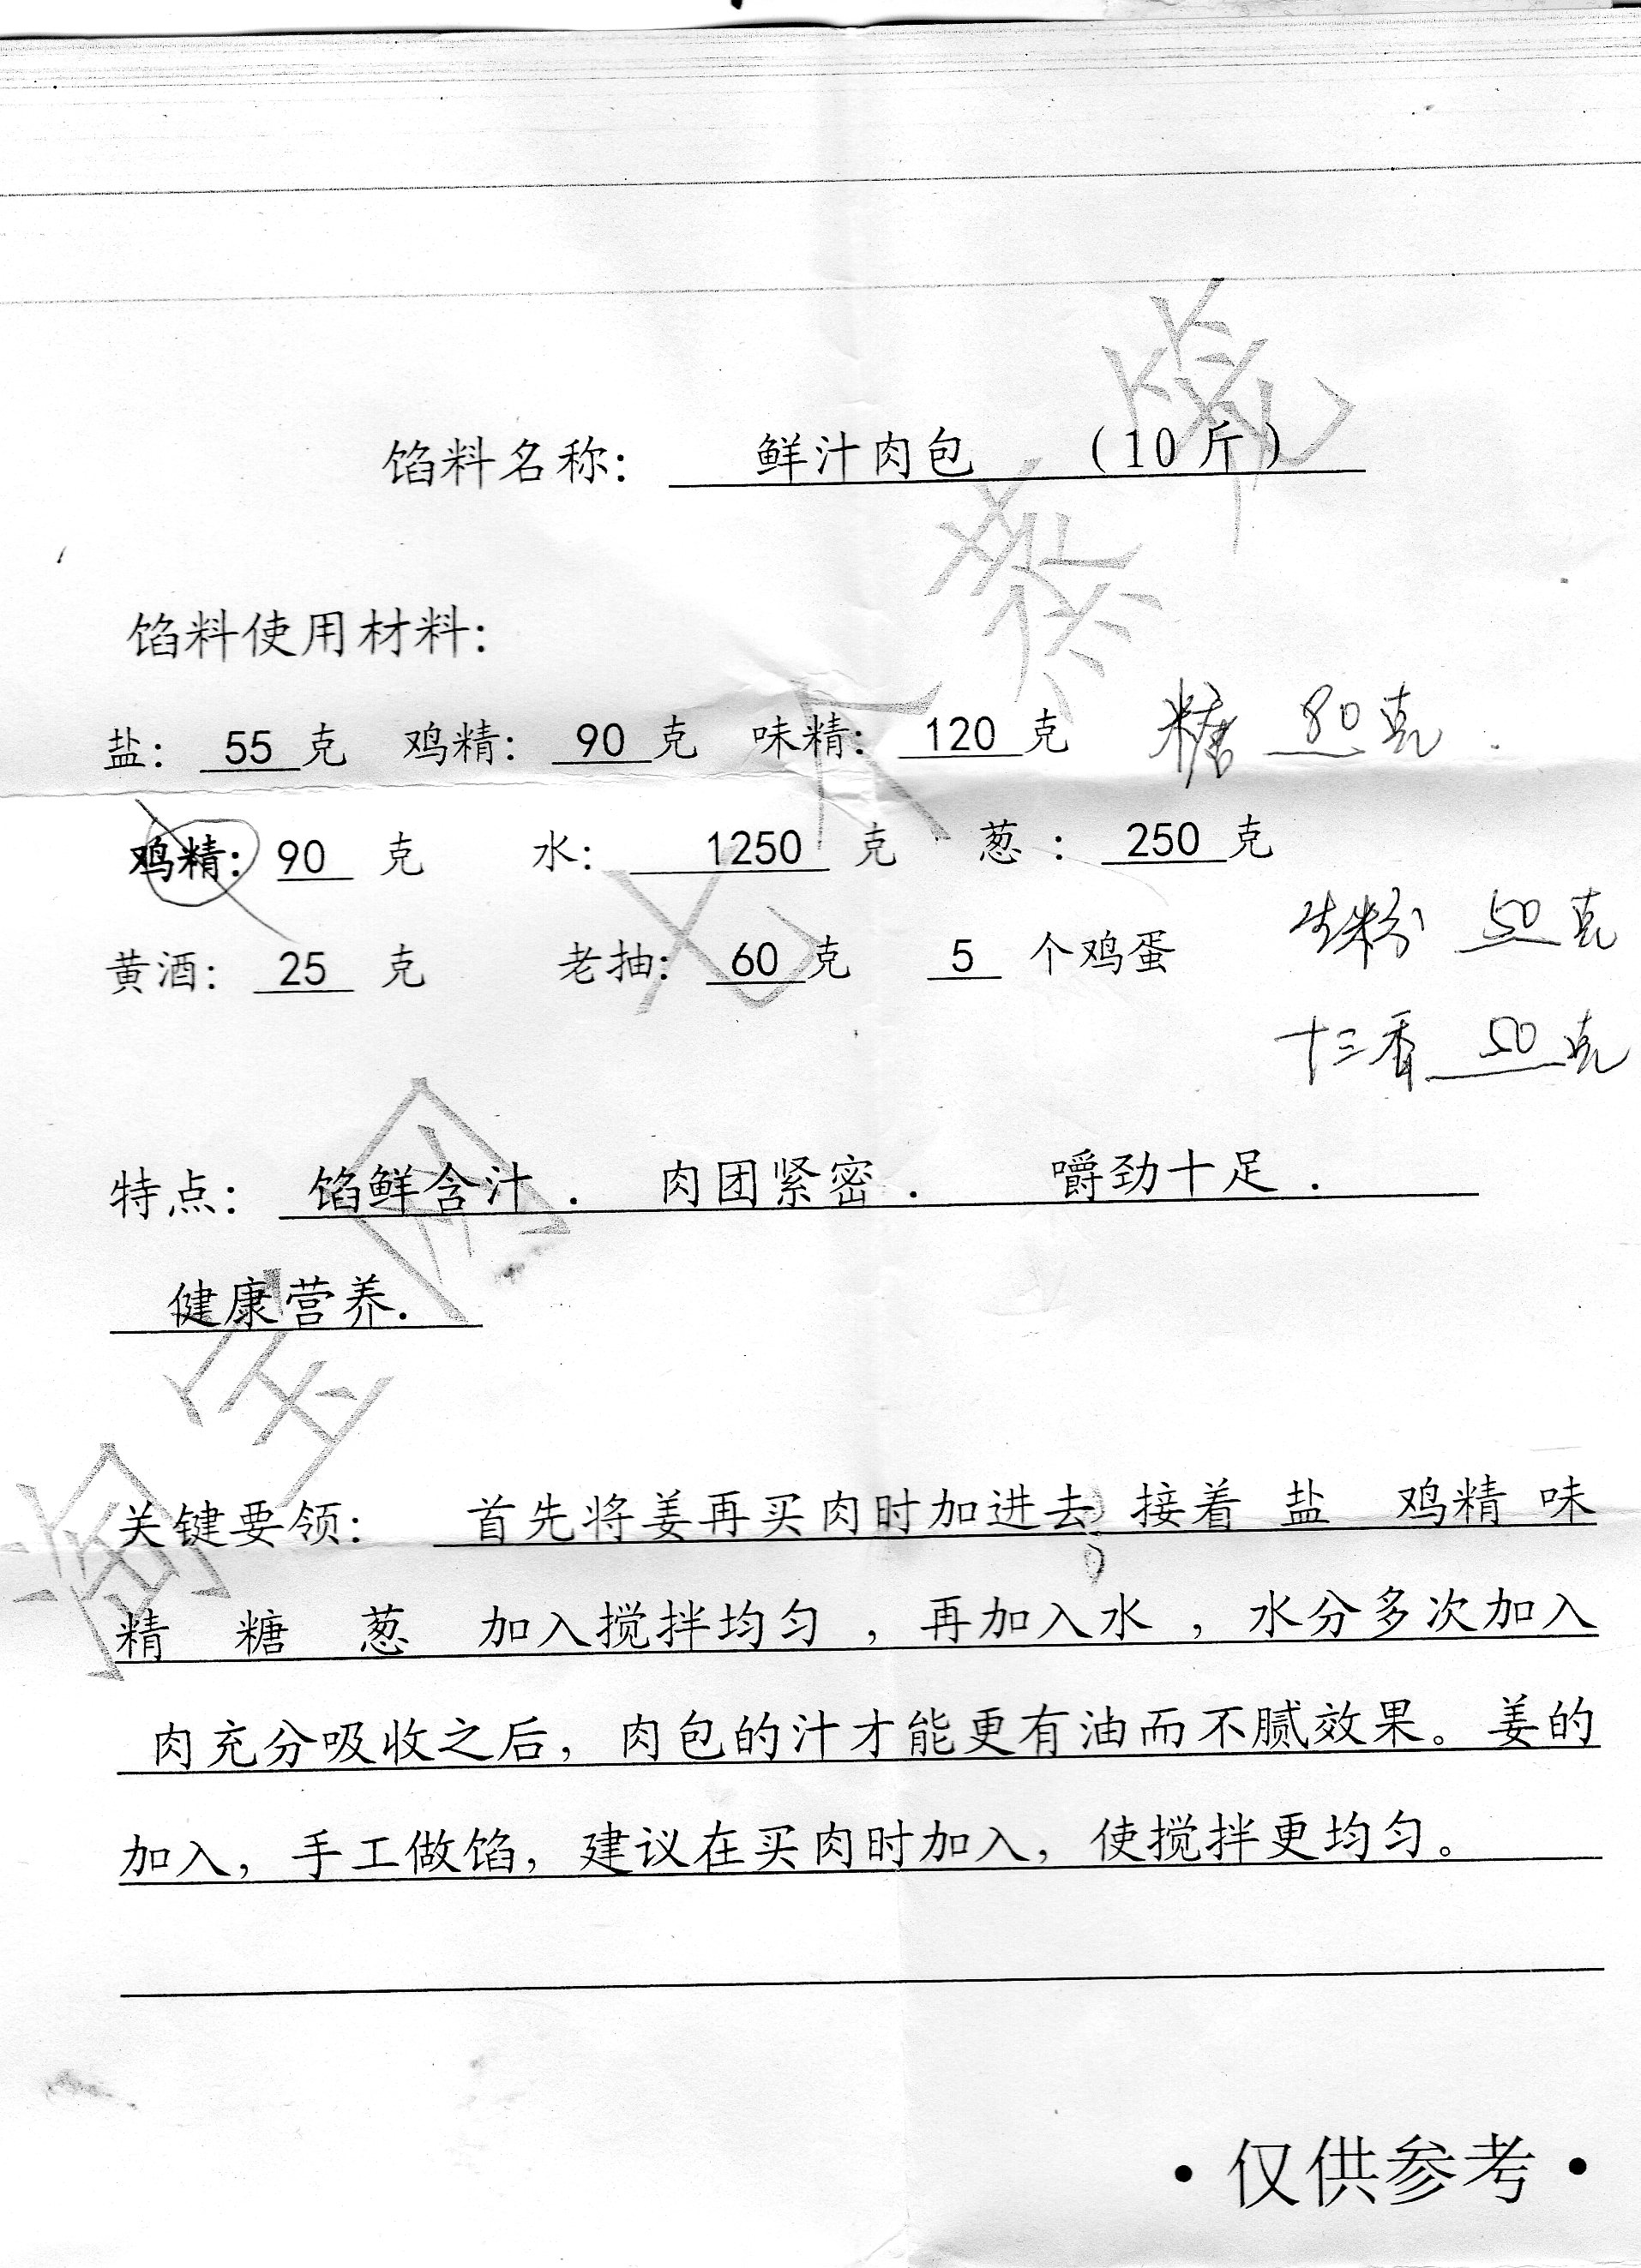 馅料名称: 鲜汁肉包 (10斤)
馅料使用材料:
盐: 55 克 鸡精: 90 克 味精: 120 克 糖 80克
鸡精: 90 克 水: 1250 克 葱: 250 克
生粉 50克
黄酒: 25 克 老抽: 60 克 5 个鸡蛋
十三香 50克
特点: 馅鲜含汁. 肉团紧密. 嚼劲十足.
健康营养.
关键要领: 首先将姜再买肉时加进去 接着 盐 鸡精 味
精 糖 葱 加入搅拌均匀,再加入水,水分多次加入
肉充分吸收之后,肉包的汁才能更有油而不腻效果。姜的
加入,手工做馅,建议在买肉时加入,使搅拌更均匀。
·仅供参考·